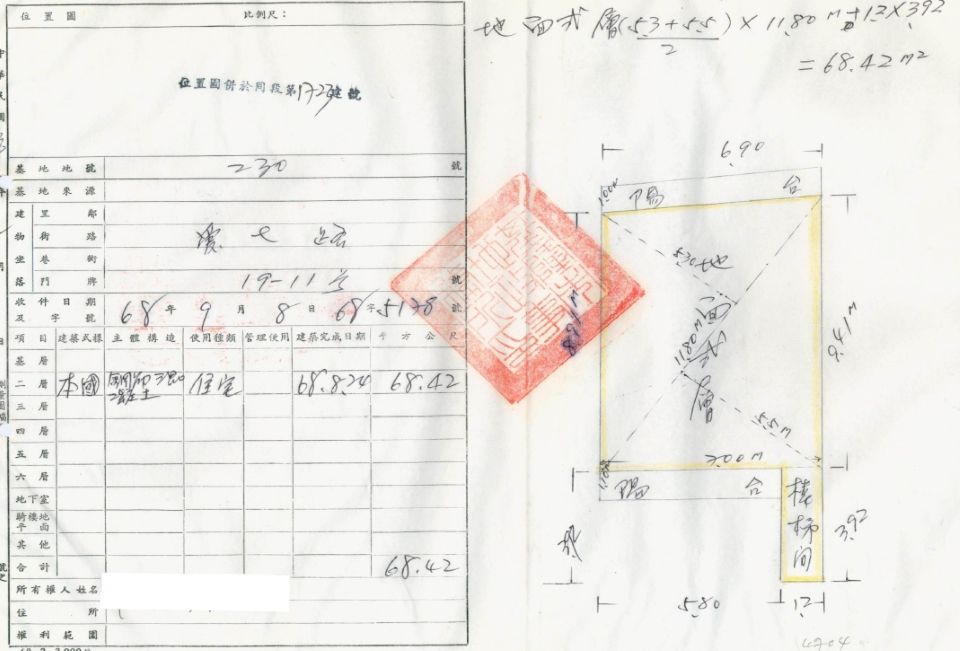 位置圖 比例尺：
位置圖併於同段第1723建號
基地地號 230 號
基地來源
建 里 鄰
物 街 路
坐 巷 街
落 門 牌 19-11号 號
收件日期及字號 68年9月8日68字5178號
項目 建築式樣 主體構造 使用種類 管理使用 建築完成日期 平方公尺
基層
二層 本國 鋼筋混凝土 住宅 68.8.24 68.42
三層
四層
五層
六層
地下室
騎樓地平面
其他
合計 68.42
所有權人姓名
住所
權利範圍
地面弍層(5.3+5.5)/2 × 11.80 M + 1.2×3.92
= 68.42 M²
6.90
1.00M
陽 台
5.30
地面弍層
11.80M
8.91M
9.41M
5.5M
7.00M
陽 台
樓梯间
3.92
5.80
1.2